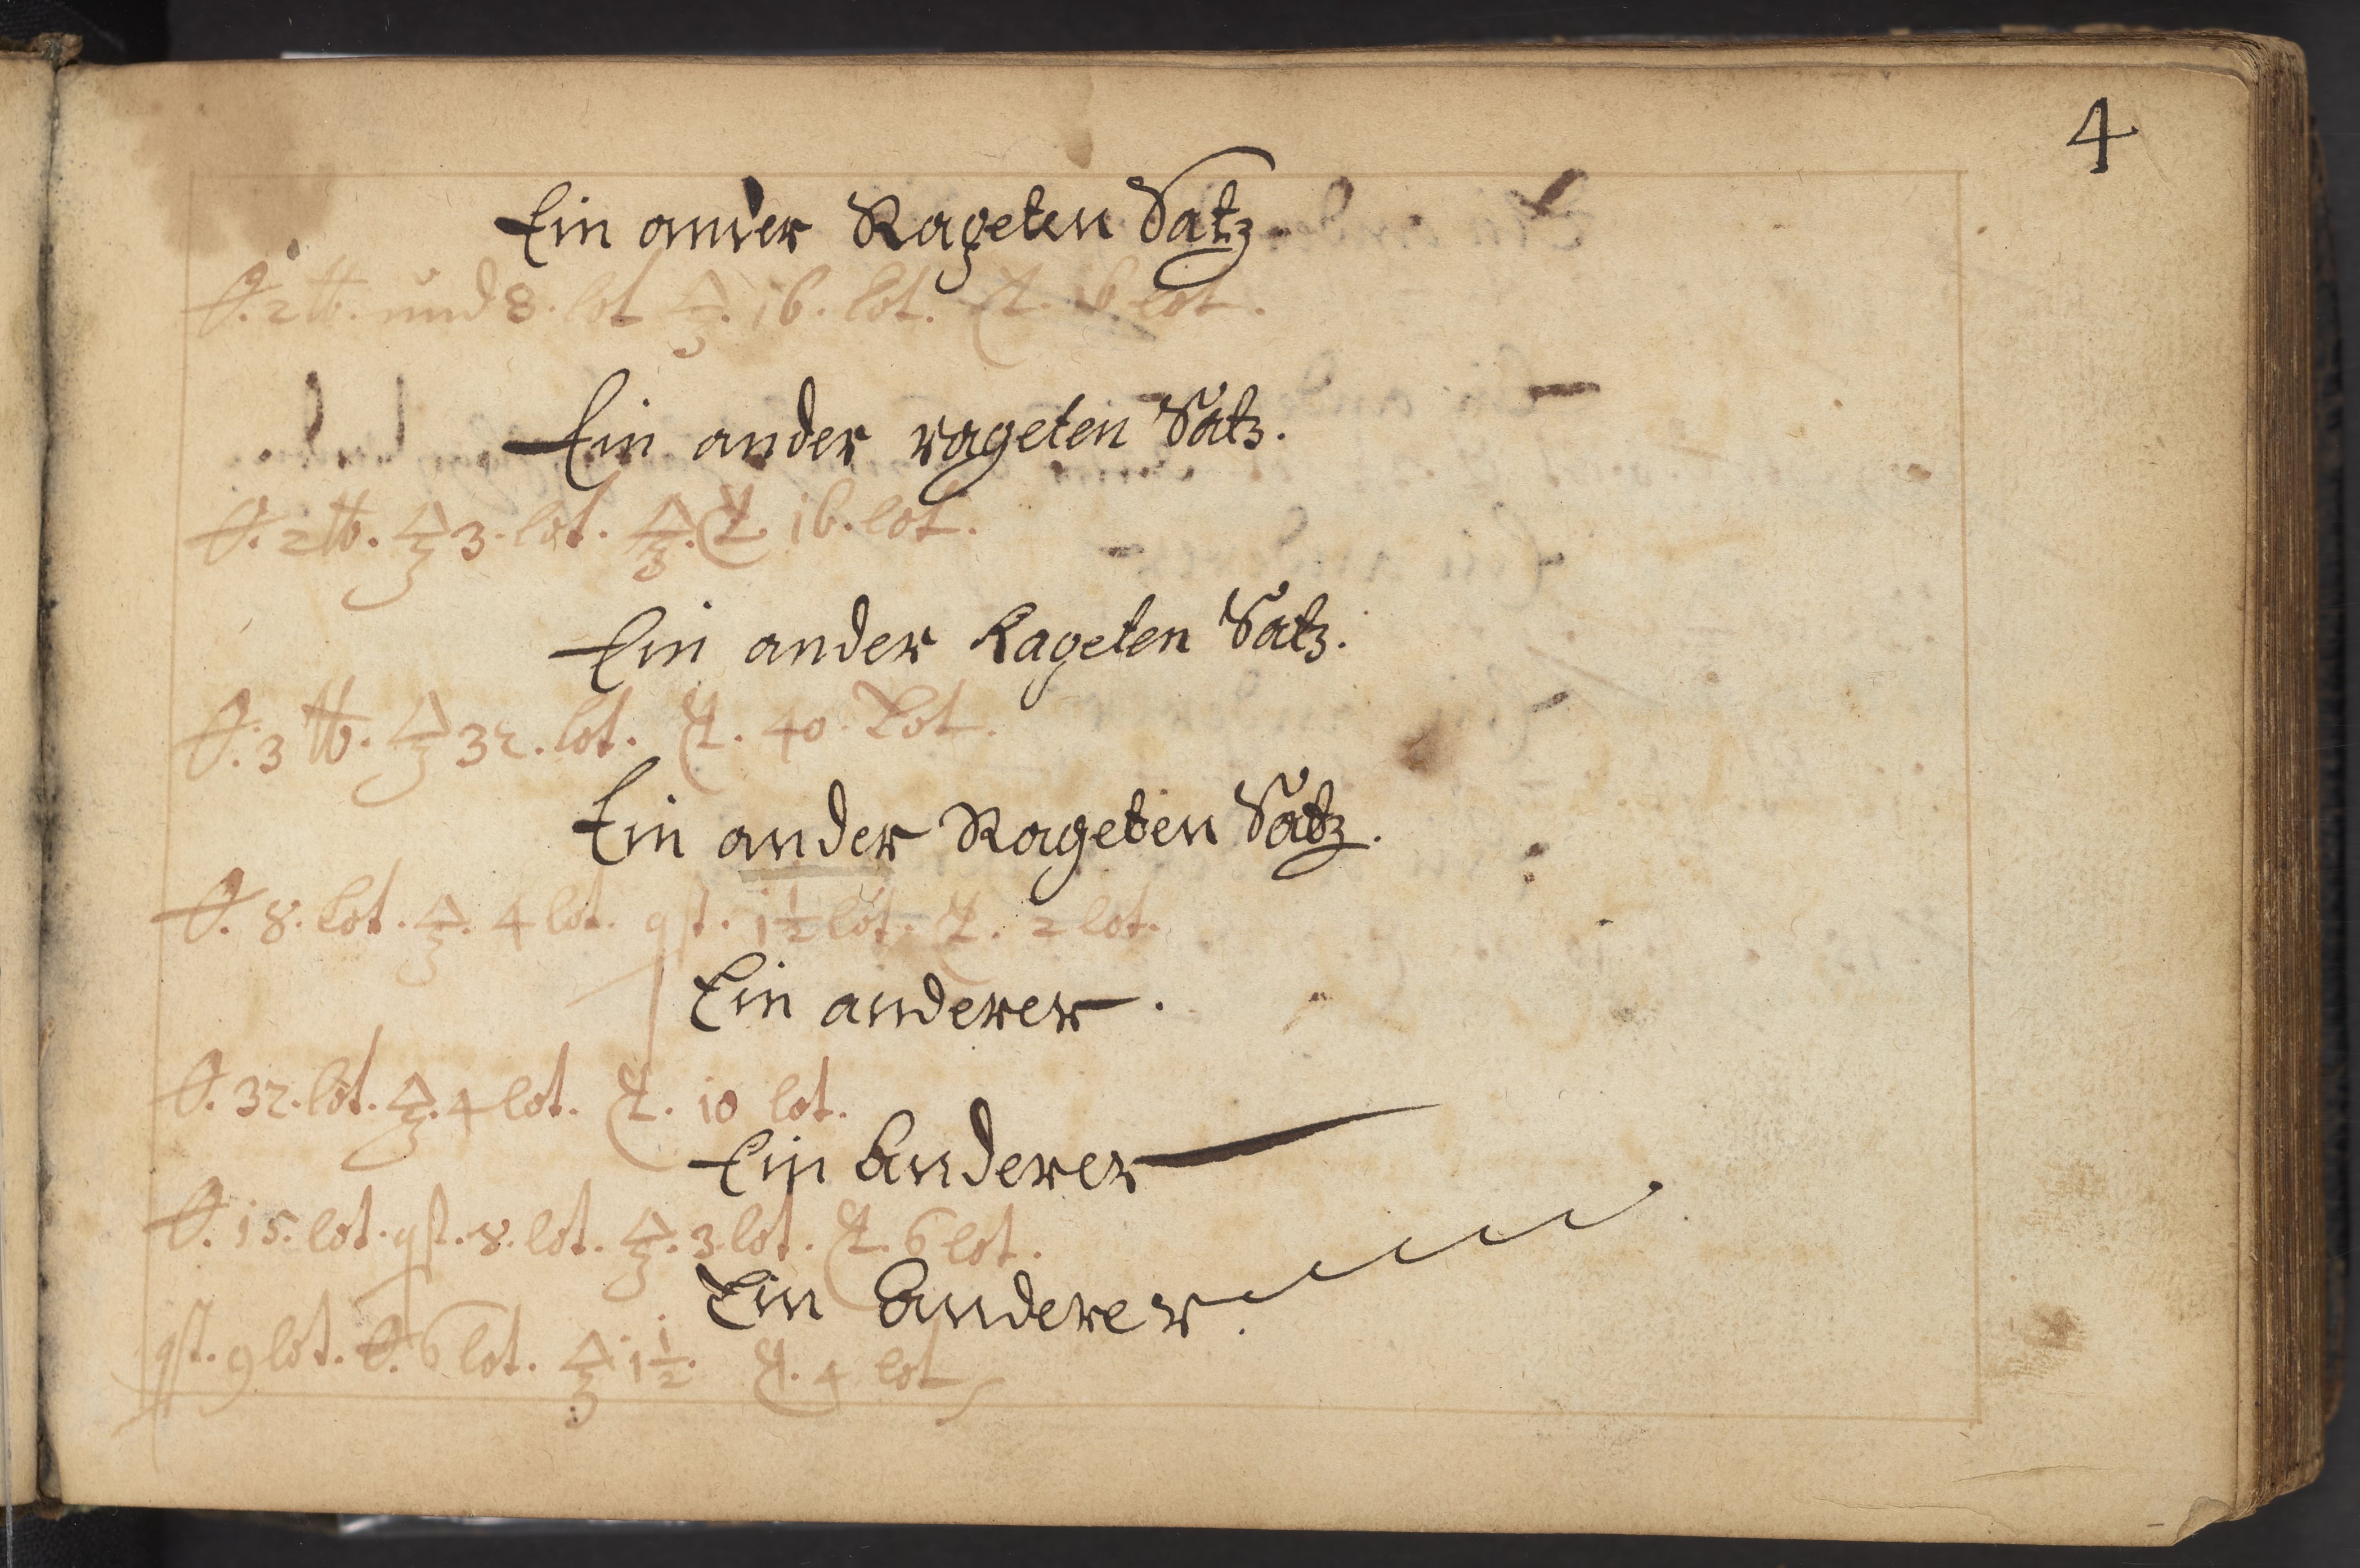 4
Ein ander Rageten Satz
2 ℔. und 8. lot 🜍. 16. lot. 16. lot.
Ein ander rageten Satz.
2 ℔. 🜍 3. lot. 🜍. 16. lot.
Ein ander Rageten Satz.
3 ℔. 🜍 32. lot. 40. Lot.
Ein ander Rageten Satz.
8. Lot. 🜍. 4 lot. qst. 1½ lot. 2 lot.
Ein anderer.
32. lot. 🜍. 4 lot. 10 lot.
Ein Anderer
15. lot. qst. 8. lot. 🜍. 3. lot. 6 lot.
Ein Anderer.
qst. 9 lot. 6 lot. 🜍 1½. 4 lot